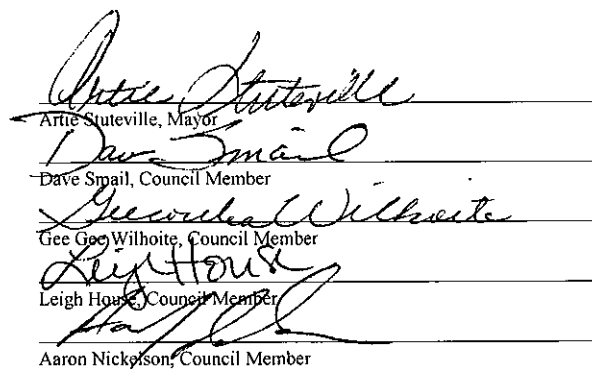 Artie Stuteville
Artie Stuteville, Mayor
Dave Smail
Dave Smail, Council Member
Wilhoite
Gee Gee Wilhoite, Council Member
Leigh House
Leigh House, Council Member
Aaron Nickelson, Council Member